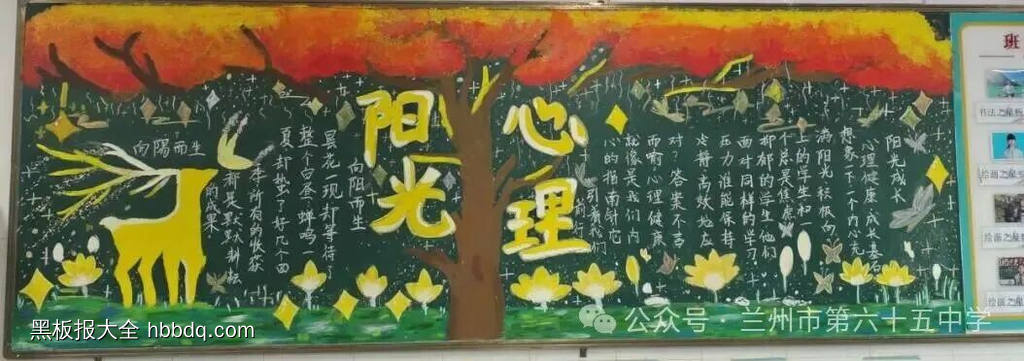 阳光
心理
向陽而生
向阳而生
昙花一现却等待了
整个白昼蝉鸣一
夏却蛰 好几个四
季所有的收获
都是默默耕耘
的成果
阳光成长
心理健康 成长基石
想象一下一个内心充
满阳光 积极向
上的学生和一
个总是焦虑
抑郁的学生 他们
面对同样的学习
压力 谁能保持
冷静 高效地应
对？答案不言
而喻 心理健康
就像是我们内
心的指南针 它
引着我们
前行
班
书法之星
绘画之星
绘画之星
绘画之星
黑板报大全 hbbdq.com
公众号 兰州市第六十五中学